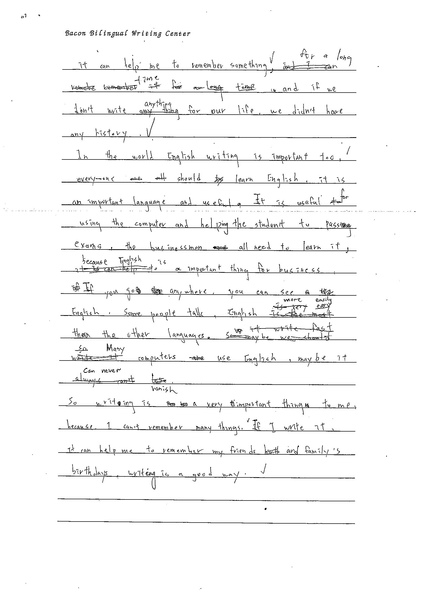 Bacon Bilingual Writing Center
it can help me to remember something, for a long
time and if we
don't write anything for our life, we didn't have
any history.
In the world English writing is important too,
everyone should learn English, it is
an important language and useful. It is useful for
using the computer and helping the student to passing
exams, the businessmen all need to learn it,
because English is a important thing for business.
If you go anywhere, you can see
English. Some people talk, English more easily
than the other languages.
So Many computers use English, maybe it
can never vanish
So writing is a very important thing to me,
because I can't remember many things. If I write it,
it can help me to remember my friends and family's
birthdays, writing is a good way.